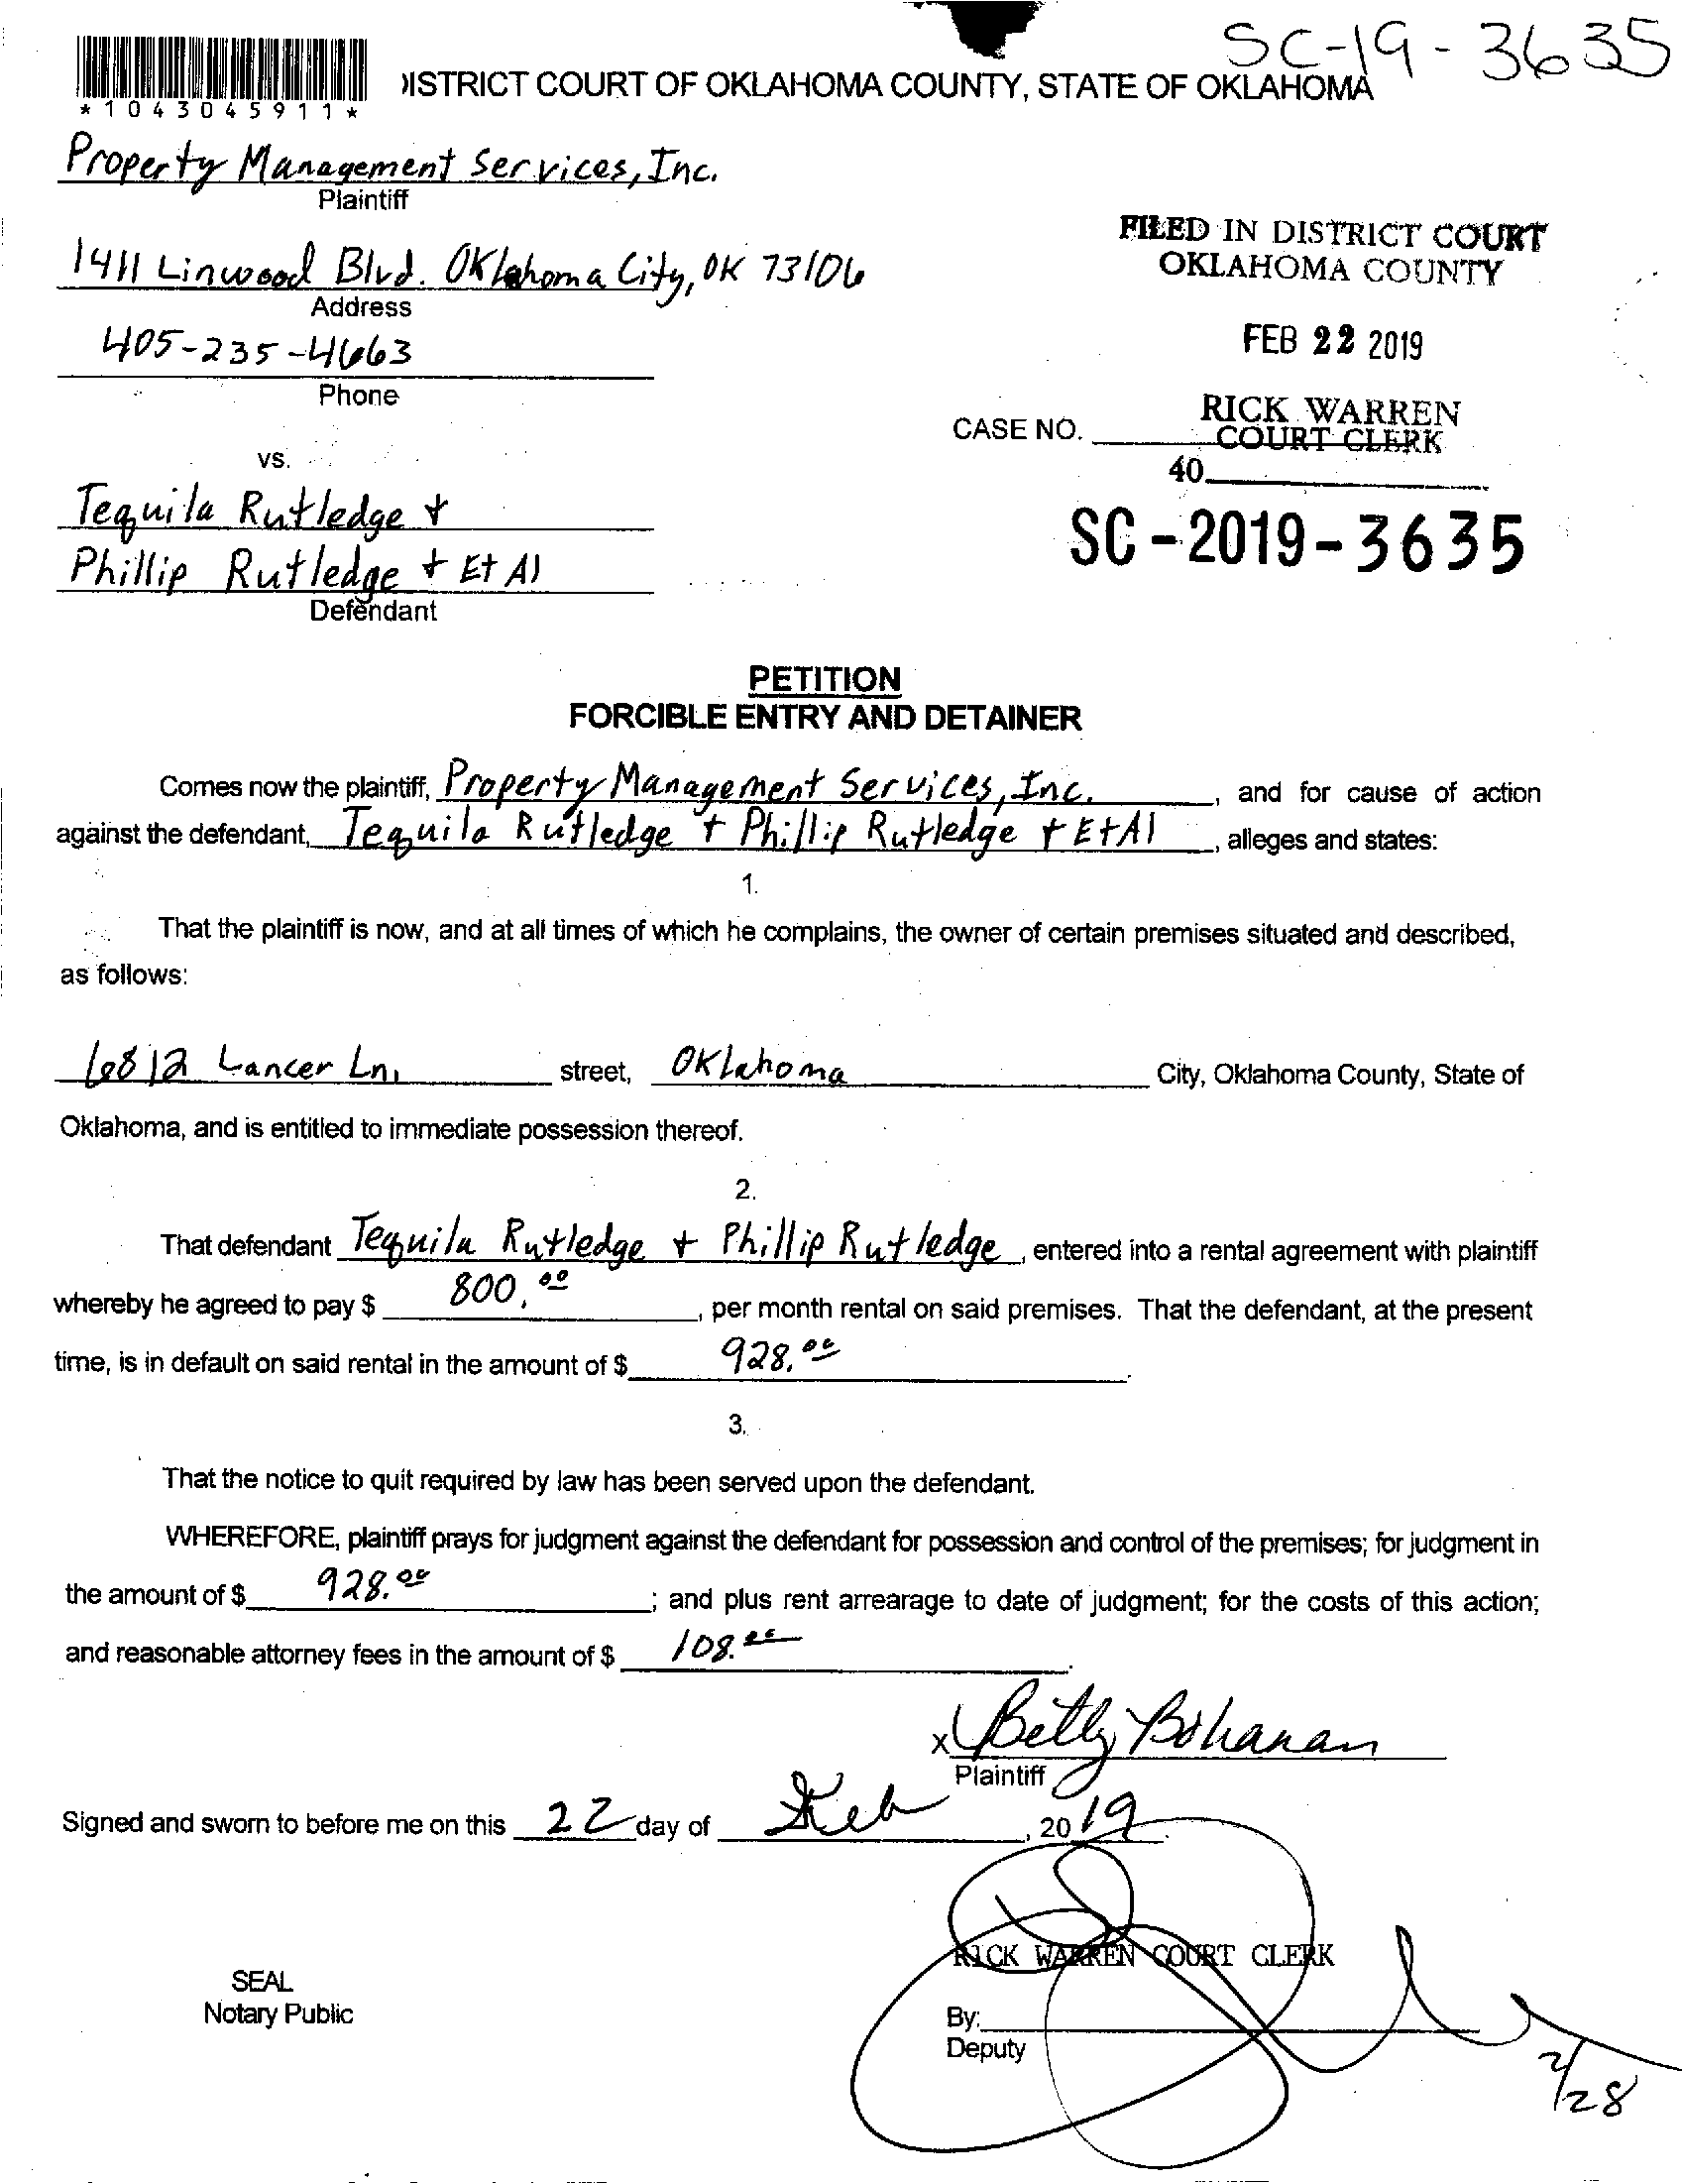 SC-19-3635
*1043045911*
DISTRICT COURT OF OKLAHOMA COUNTY, STATE OF OKLAHOMA
Property Management Services, Inc.
Plaintiff
1411 Linwood Blvd. Oklahoma City, OK 73106
Address
405-235-4663
Phone
FILED IN DISTRICT COURT
OKLAHOMA COUNTY
FEB 22 2019
RICK WARREN
COURT CLERK
CASE NO.
40
SC-2019-3635
vs.
Tequila Rutledge +
Phillip Rutledge + Et Al
Defendant
PETITION
FORCIBLE ENTRY AND DETAINER
Comes now the plaintiff, Property Management Services, Inc., and for cause of action
against the defendant, Tequila Rutledge + Phillip Rutledge + Et Al, alleges and states:
1.
That the plaintiff is now, and at all times of which he complains, the owner of certain premises situated and described,
as follows:
6812 Lancer Ln. street, Oklahoma City, Oklahoma County, State of
Oklahoma, and is entitled to immediate possession thereof.
2.
That defendant Tequila Rutledge + Phillip Rutledge, entered into a rental agreement with plaintiff
whereby he agreed to pay $ 800.00, per month rental on said premises. That the defendant, at the present
time, is in default on said rental in the amount of $ 928.00.
3.
That the notice to quit required by law has been served upon the defendant.
WHEREFORE, plaintiff prays for judgment against the defendant for possession and control of the premises; for judgment in
the amount of $ 928.00; and plus rent arrearage to date of judgment; for the costs of this action;
and reasonable attorney fees in the amount of $ 108.00.
x Betty Bohanan
Plaintiff
Signed and sworn to before me on this 22 day of Feb, 2019.
RICK WARREN COURT CLERK
SEAL
Notary Public
By:
Deputy
2/28